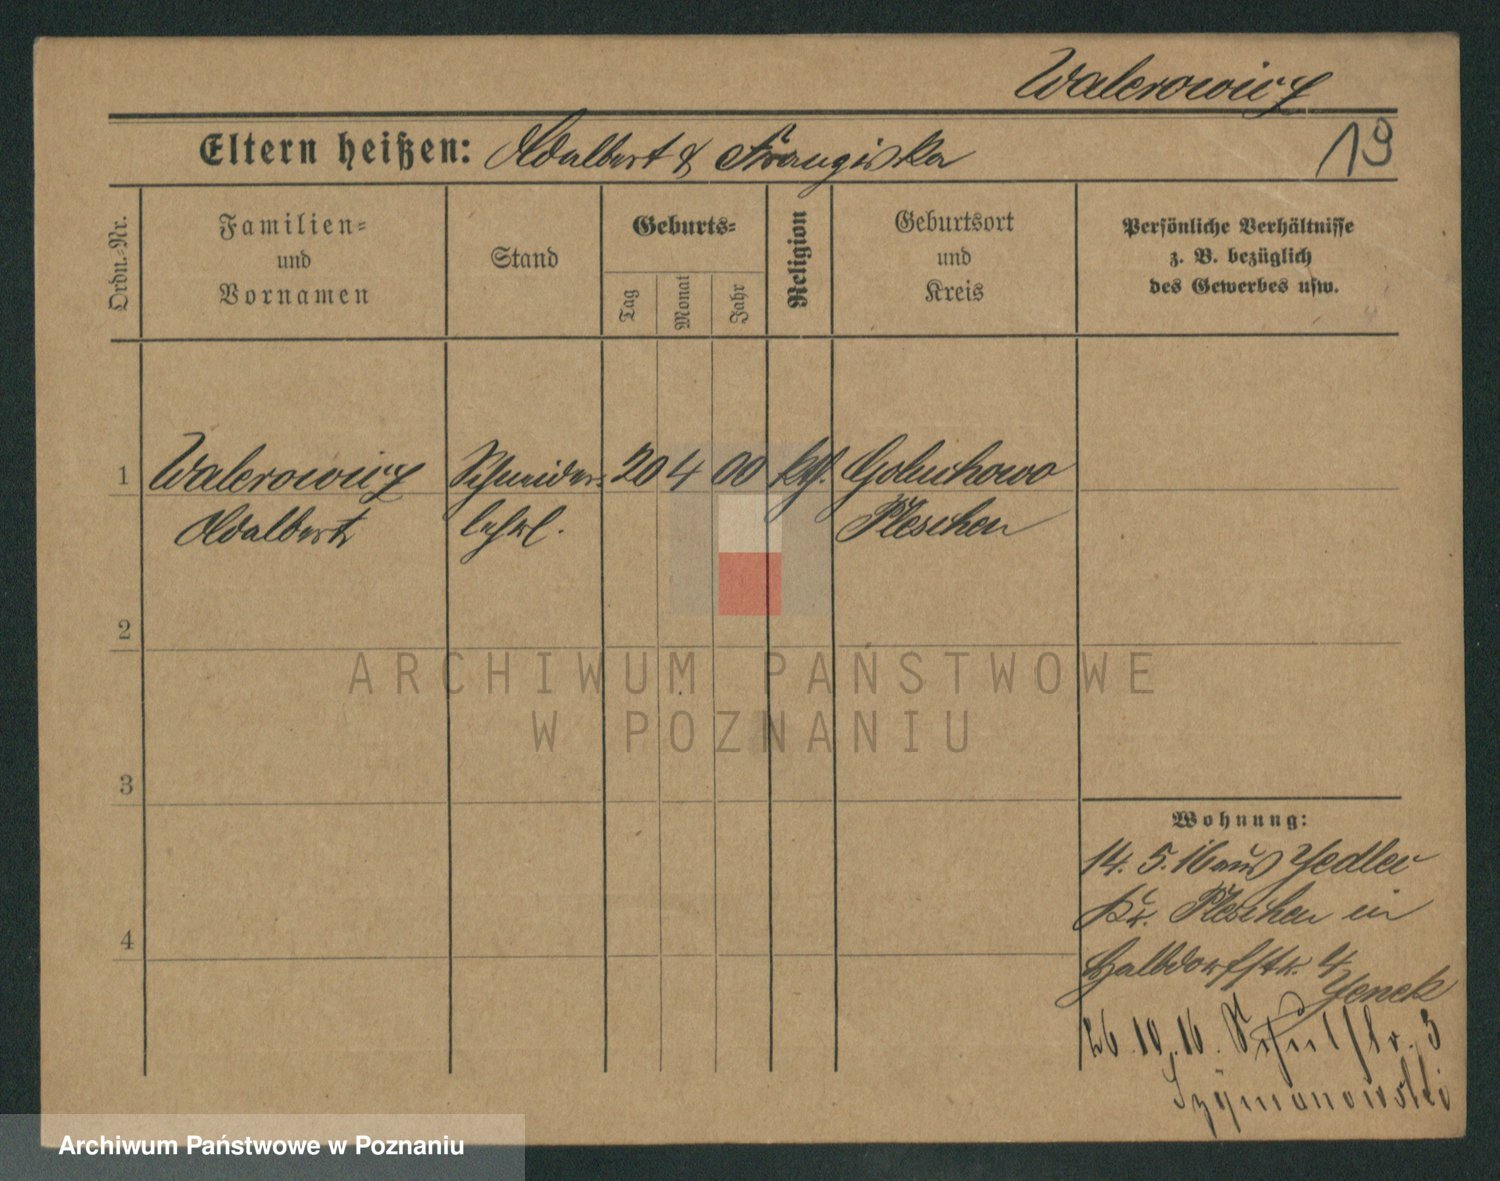 Walerowicz
Eltern heißen: Adalbert & Franziska
19
Ordn.-Nr.
Familien-
und
Vornamen
Stand
Geburts-
Tag
Monat
Jahr
Religion
Geburtsort
und
Kreis
Persönliche Verhältnisse
z. B. bezüglich
des Gewerbes usw.
1 Walerowicz Schneider- 20 4 00 kth. Goluchowo
Adalbert lehrl. Pleschen
2
ARCHIWUM PAŃSTWOWE
W POZNANIU
3
Wohnung:
14. 5. 16 aus Jedlec
Kr. Pleschen in
Halbdorfstr. 4
Jenek
26.10.16. Schulstr. 3
Szymanowski
4
Archiwum Państwowe w Poznaniu